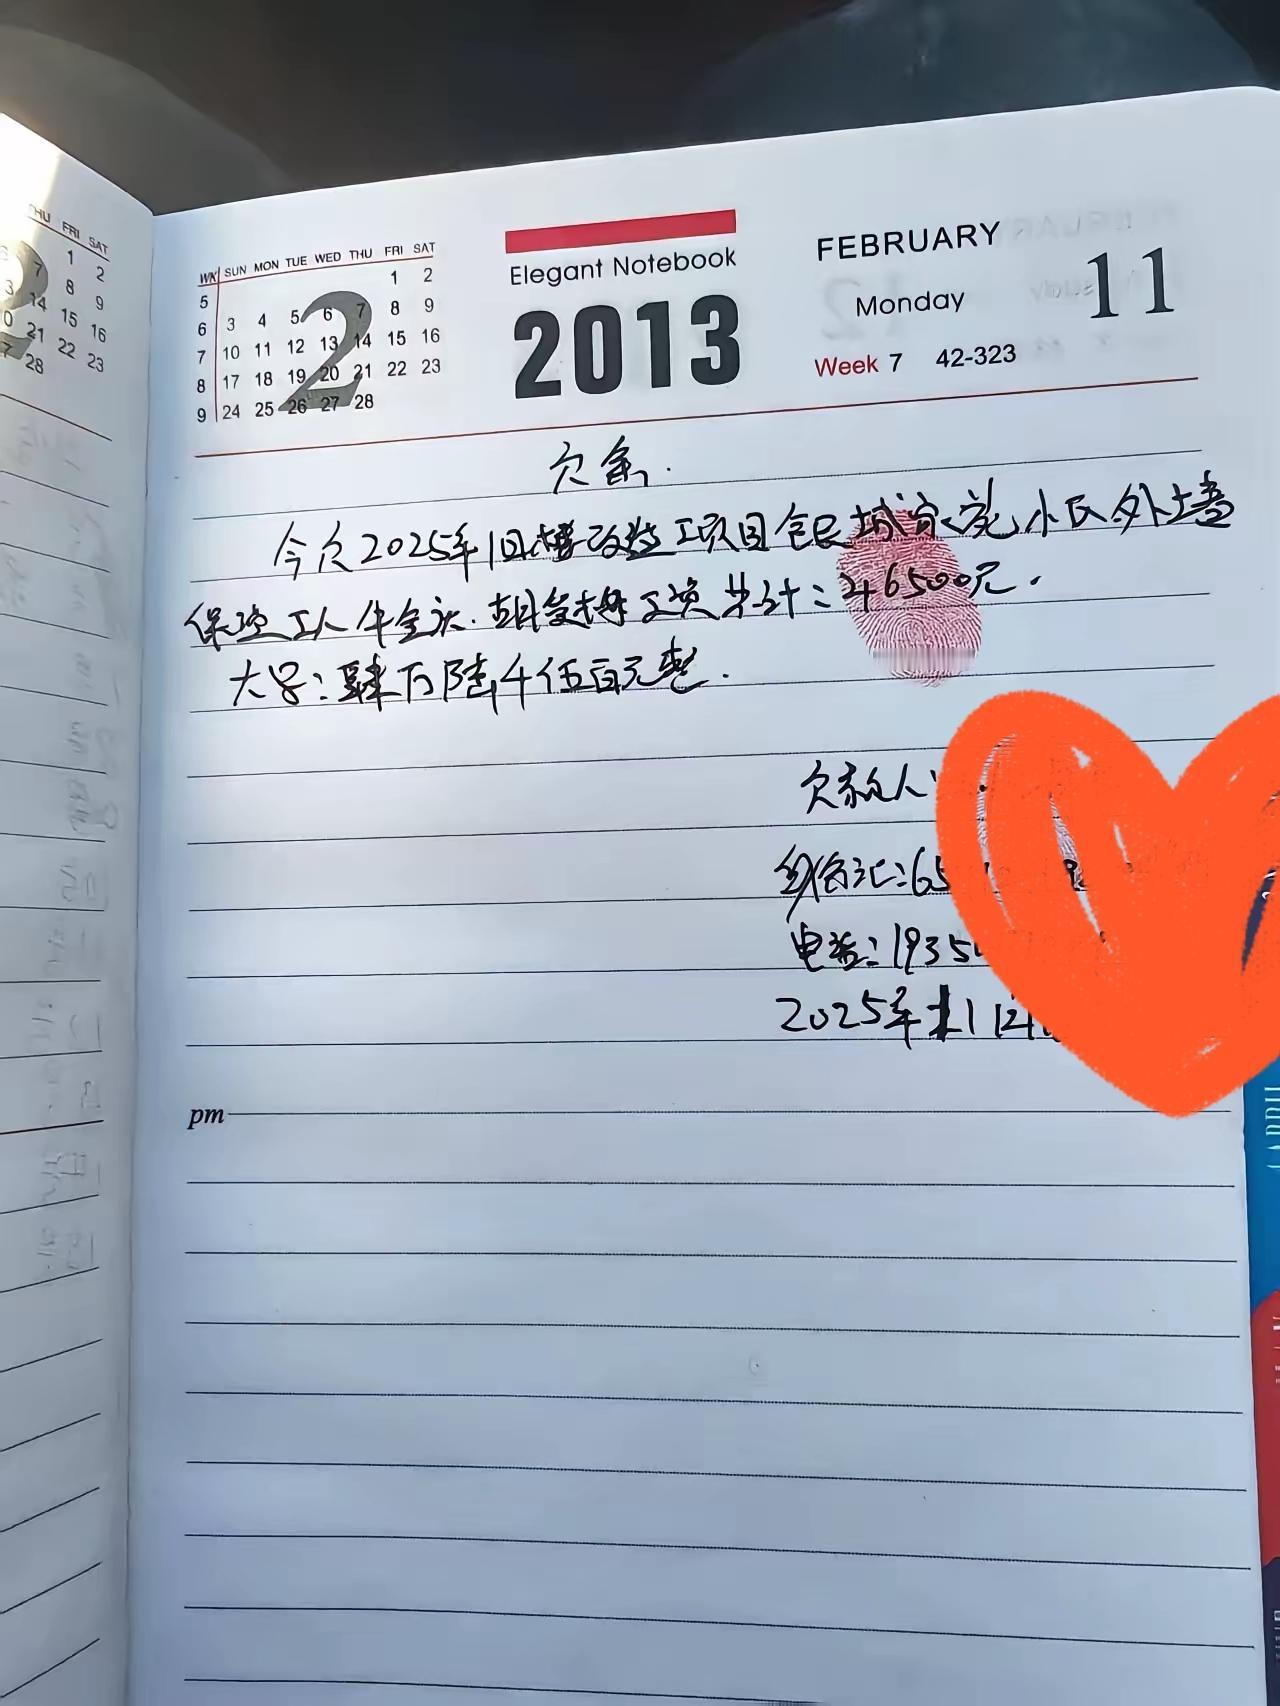 THU FRI SAT
1 2
7 8 9
14 15 16
21 22 23
28
WK SUN MON TUE WED THU FRI SAT
5 1 2
6 3 4 5 6 7 8 9
7 10 11 12 13 14 15 16
8 17 18 19 20 21 22 23
9 24 25 26 27 28
2
Elegant Notebook
2013
FEBRUARY
Monday 11
Week 7 42-323
欠条.
今欠2025年旧楼改造工项目 城 苑小区外墙
保温工人牛全 工资共计:46500元.
大写:肆万陆千伍百元整.
欠款人:
身份证:65
电话:1935
2025年11 12
pm